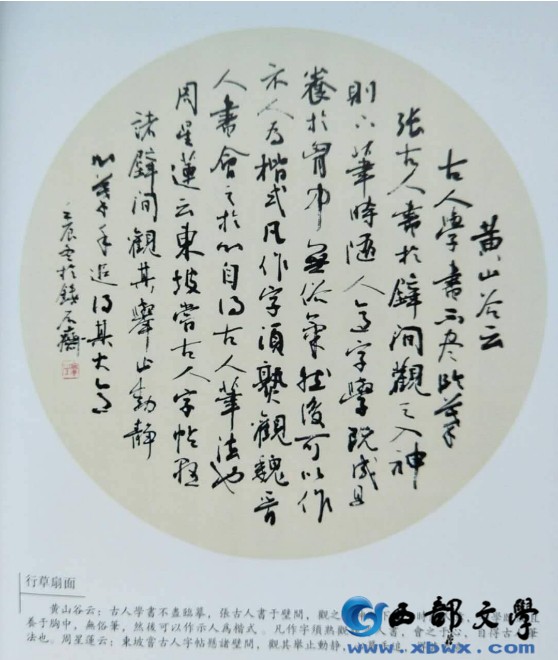 黄山谷云
古人學書不盡臨摹
張古人書於壁間觀之入神
則下筆時隨人意字學既成且
養於胷中無俗氣然後可以作
示人為楷式凡作字須熟觀魏晋
人書會之於心自得古人筆法也
周星蓮云東坡嘗古人字帖懸
諸壁間觀其舉止動靜
心摹手追得其大意
壬辰冬於鐵石齋
行草扇面
黄山谷云：古人學書不盡臨摹，張古人書于壁間，觀之
養于胸中，無俗筆，然後可以作示人爲楷式。凡作字須熟觀 人書，會之于心，自得古 筆
法也。周星蓮云：東坡嘗古人字帖懸諸壁間，觀其舉止動静，
西部文學
www.xbwx.com